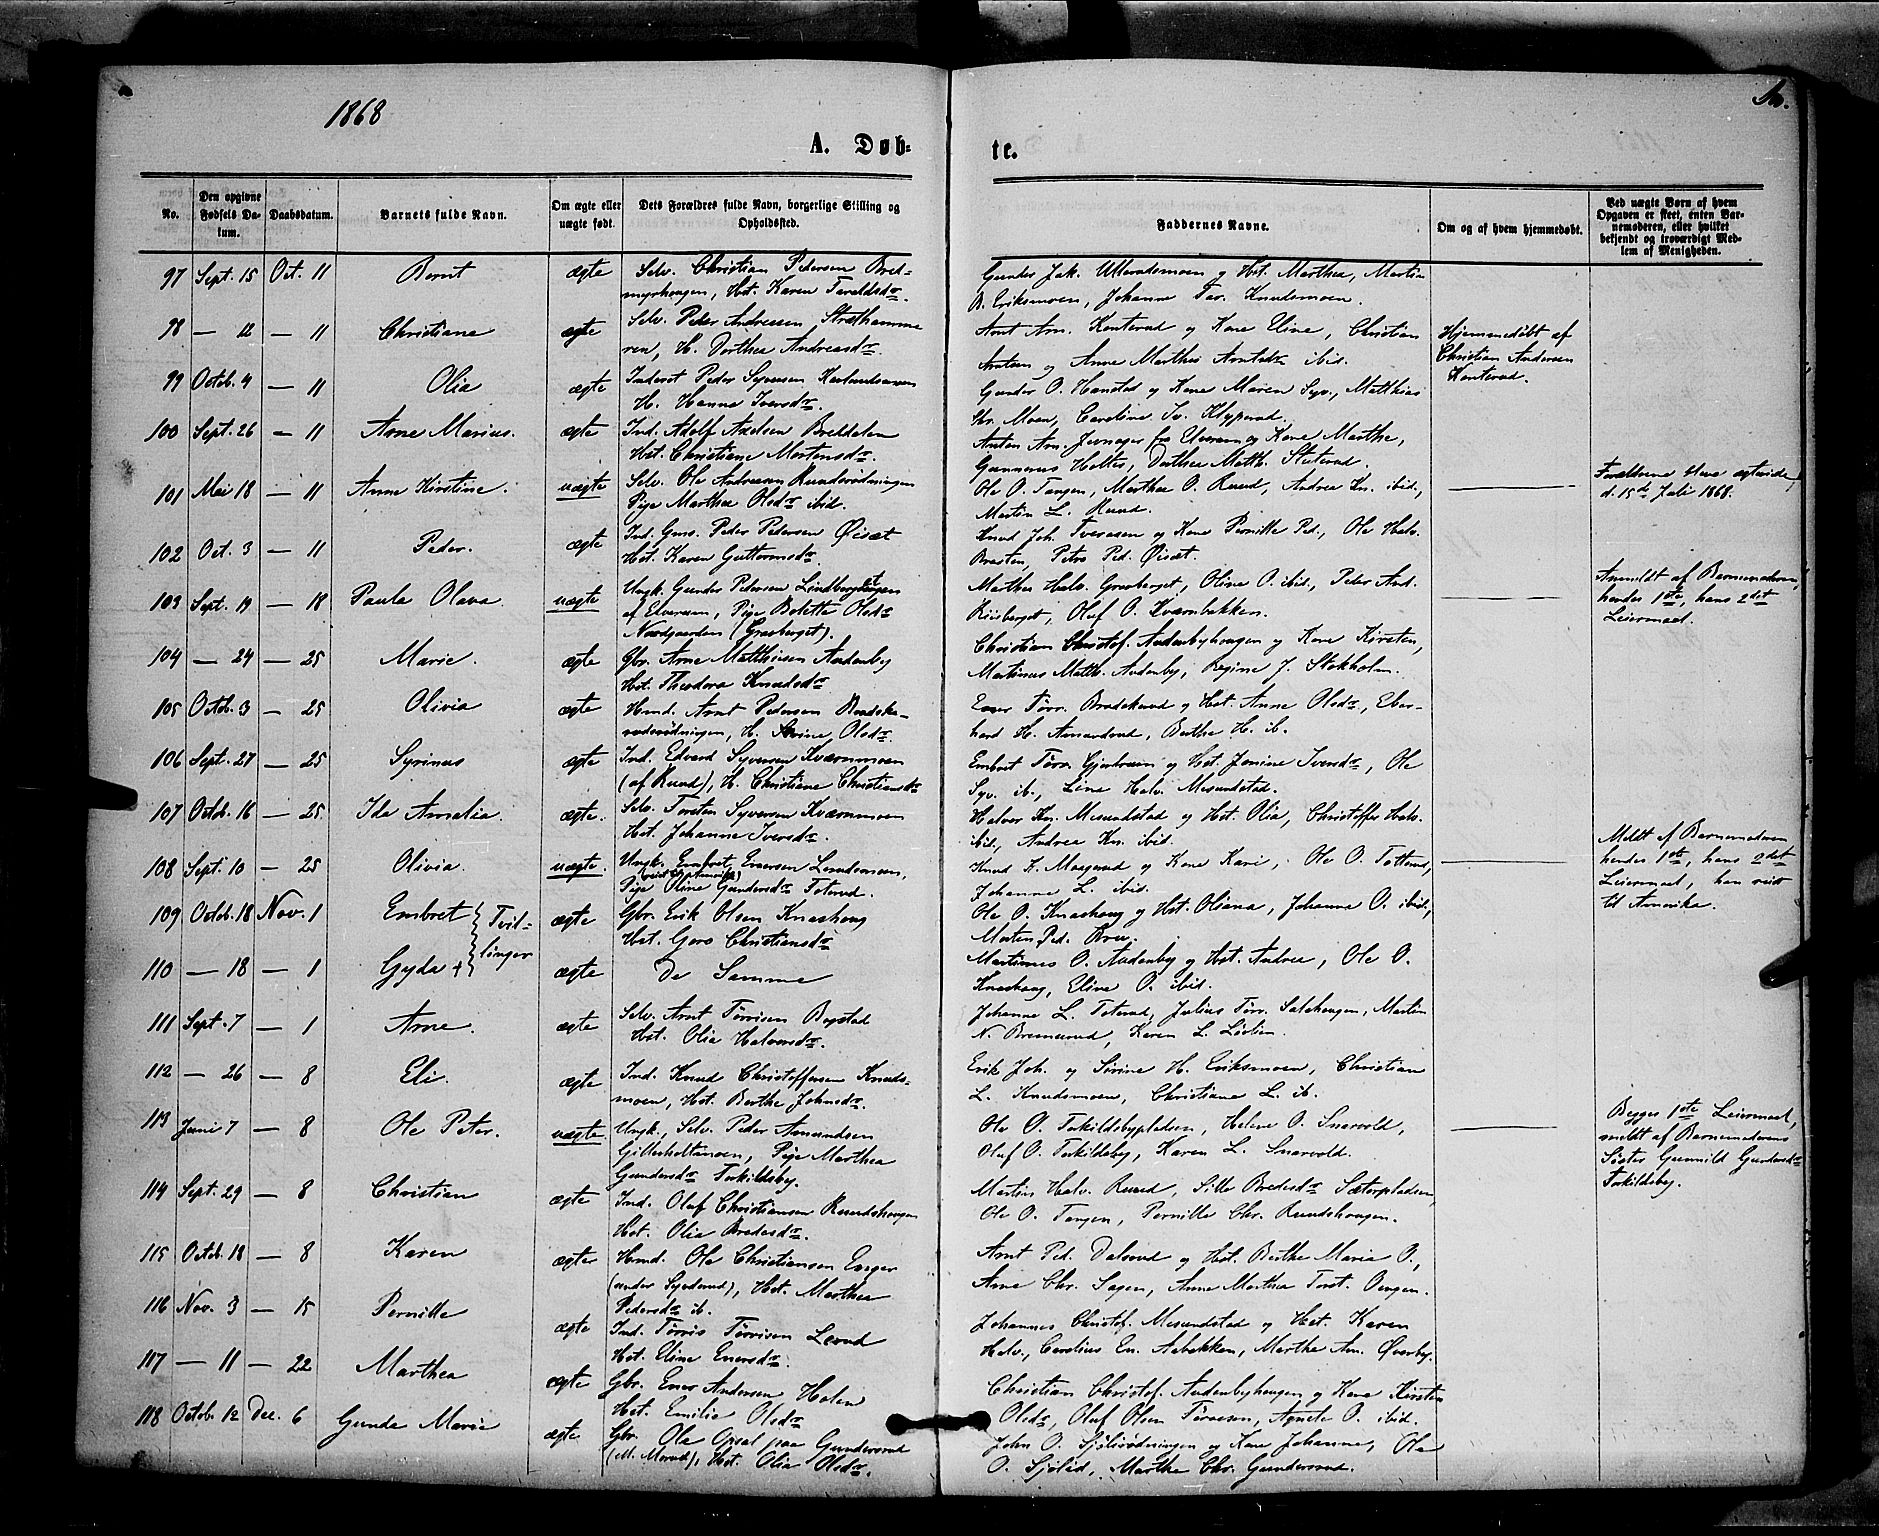 1868
A. Døb-
te.
No.
Den opgivne Fødsels Da-
tum.
Daabsdatum.
Barnets fulde Navn.
Om ægte eller uægte født.
Dets Forældres fulde Navn, borgerlige Stilling og Opholdssted.
Faddernes Navne.
Om og af hvem hjemmedøbt.
Ved uægte Børn af hvem
Opgaven er skeet, enten Bar-
nemoderen, eller hvilket
bekjendt og troværdigt Med-
lem af Menigheden.
97 Sept. 15 Oct. 11 Bernt ægte Selv. Christian Pedersen Bred-
myrhaugen, Hst. Karen Taraldsdr.
Gunder Jak. Ulleradsmoen og Hst. Marthea, Martin
B. Eriksmoen, Johanne Tar. Knudsmoen.
98 — 12 — 11 Christiane ægte Selv. Peder Andressen
ren, H. Dorthea Andreasdr.
Arnt Arn. Konterud og Kone Eline, Christian
og Anne Marthea Arntsdr ibid.
Hjemmedøbt af
Christian Andersen
Konterud.
99 Octb. 4 — 11 Olia ægte Inderst Peder Syversen
H. Hanna Iversdr.
Gunder O. Hanstad og Kone Maren Syv., Matthias
Chr. Moen, Caroline Iv. Klyperud.
100 Sept. 26 — 11 Arne Marius. ægte Ind. Adolf Axelsen Breddalen
Hst. Christiane Mortensdr.
Anton Arn. fra Elverum og Kone Marthe,
Gunnerus Holter, Dorthea Matth. Sletterud.
101 Mai 18 — 11 Anne Kirstine. uægte Selv. Ole Andreasen Rundsrødningen
Pige Marthea Olsdr ibid.
Ole O. Tangen, Marthea O. Ruud, Andrea Kn. ibid.,
Martin L. Ruud.
Forældrene bleve ægteviede
d. 15de Juli 1868.
102 Oct. 3 — 11 Peder. ægte Ind. Peder Pedersen Øisæt
Hst. Karen Guttormsdr.
Knud Joh. Tveraasen og Kone Pernille Ped., Ole Halv.
Braaten, Petra Ped. Øisæt.
103 Sept. 19 — 18 Paula Olava. uægte Ungk. Gunder Pedersen Lindberghaugen
af Elverum, Pige Bolette Olsdr
Nordgaarden (Grasberget).
Marthea Halv. Grasberget, Oline O. ibid., Peder And.
Riisberget, Oluf O. Kværnbakken.
Anmeldt af Barnemoderen,
hendes 1ste, hans 2det
Leiermaal.
104 — 24 — 25 Marie. ægte Gbr. Arne Matthisen Audenby
Hst. Theodora Knudsdr
Christian Christof. Audenbyhaugen og Kone Kirsten,
Martinus Matth. Audenby, Regine J. Stokholm.
105 Octb. 3 — 25 Olivia ægte Hmd. Arnt Pedersen Bradske-
rudsrødningen, H. Serine Olsdr.
Ener Tørr. Bradskerud og Hst. Anne Olsdr, Eber-
hard H. Amundrud, Berthe H. ib.
106 Sept. 27 — 25 Syrinus ægte Ind. Edvard Syversen Kværnmoen
(af Ruud), H. Christiane Christiansdr
Embret Tørr. Gjertruen og Hst. Jensine Iversdr, Ole
Syv. ib., Lina Halv. Mesundstad.
107 Octb. 16 — 25. Ida Amalia. ægte. Selv. Torsten Syversen Kværnmoen
Hst. Johanne Iversdr.
Halvor Kn. Mesundstad og Hst. Olia, Christoffer Hals.
ibid., Andrea Kn. ibid.
108 Sept. 10 — 25 Olivia. uægte. Ungk. Embret Enersen Lundsmoen,
Pige Oline Gundersdr Toterud.
Knud F. Maagerud og Kone Kari, Ole O. Totterud,
Johanne L. ibid.
Meldt af Barnemoderen
hendes 1ste, hans 2det
Leiermaal, han reist
til Amerika.
109 Octb. 18 Nov. 1 Embret
Tvil-
linger
ægte Gbr. Erik Olsen Knashaug
Hst. Goro Christiansdr
Ole O. Knashaug og Hst. Oliana, Johanna O. ibid.,
Morten Ped. Bree.
110 — 18 — 1 Gyda + ægte De Samme
Martinus O. Audenby og Hst. Andrea, Ole O.
Knashaug, Eline O. ibid.
111 Sept. 7 — 1 Arne. ægte Selv. Arnt Tørrisen Bogstad
Hst. Olia Halvorsdr.
Johanne L. Toterud, Julius Tørr. Sætehaugen, Martin
N. Brennerud, Karen L. Løvlien.
112 — 26 — 8 Eli. ægte Ind. Knud Christoffersen Knuds-
moen, Hst. Berthe Johnsdr.
Erik Joh. og Sørine H. Eriksmoen, Christian
L. Knudsmoen, Christiane L. ib.
113 Juni 7 — 8 Ole Peter. uægte. Ungk., Selv. Peder Amundsen
Gillerholtmoen, Pige Marthea
Gundersdr Torkildsby.
Ole O. Torkildsbypladsen, Helene O. Snarvold,
Oluf O. Torkildsby, Karen L. Snarvold.
Begges 1ste Leiermaal,
meldt af Barnemoderens
Søster Gunnild Gundersdr
Torkildsby.
114 Sept. 29 — 8 Christian ægte Ind. Oluf Christiansen Ruudshaugen
Hst. Olia Bredesdr.
Martin Halv. Ruud, Sille Bredesdr Sæterpladsen,
Ole O. Tangen, Pernille Chr. Ruudshaugen.
115 Octb. 18 — 8 Karen ægte Hmd. Ole Christiansen Enger
(under Gjederud), Hst. Marthea
Pedersdr ib.
Arnt Ped. Dalsrud og Hst. Berthe Maria O.,
Arne Chr. Sagen, Anne Marthea Torst. Oengen.
116 Nov. 3 — 15 Pernille ægte Ind. Tørris Tørrisen Lerud
Hst. Eline Enersdr.
Johannes Christof. Mesundstad og Hst. Karen
Halv., Carelius En. Aabakken, Marthe Arn. Øverby.
117 — 11 — 22 Marthea ægte Gbr. Ener Andersen Holen
Hst. Emilie Olsdr
Christian Christof. Audenbyhaugen og Kone Kirsten
Olsdr, Oluf Olsen Tørresen, Agnete O. ibid.
118 Octb. 12 Dec. 6 Gunda Marie ægte Gbr. Ole Opsal paa Gundersrud
(M. Morud), Hst. Olia Olsdr.
John O. Sjølirødningen og Kone Johanne, Ole
O. Sjølid, Marthe Chr. Gundersrud.